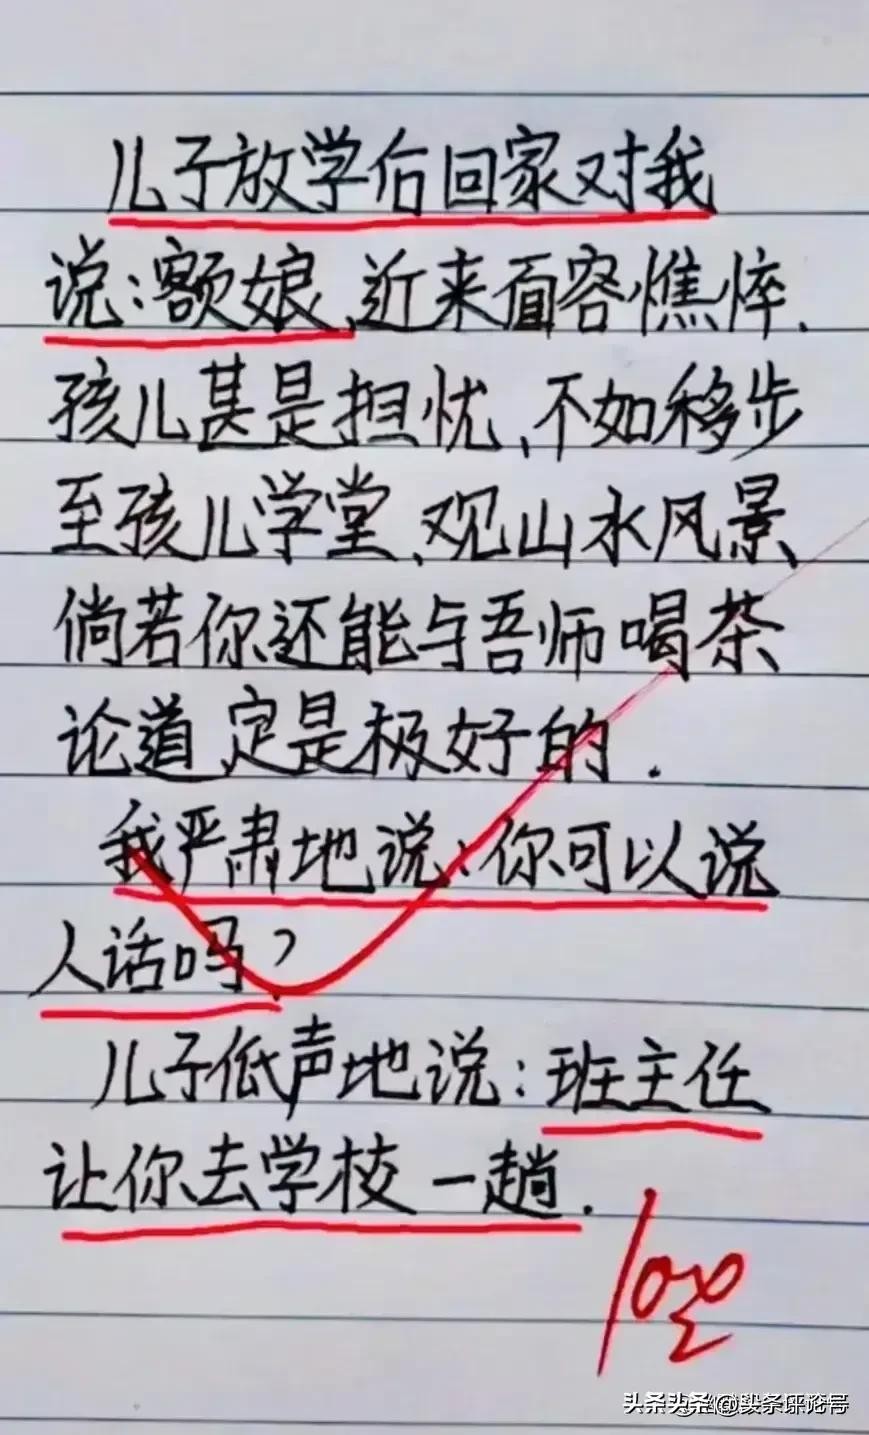 儿子放学后回家对我
说:额娘、近来面容憔悴.
孩儿甚是担忧、不如移步
至孩儿学堂、观山水风景、
倘若你还能与吾师喝茶
论道定是极好的.
我严肃地说:你可以说
人话吗?
儿子低声地说:班主任
让你去学校一趟.
100
头条